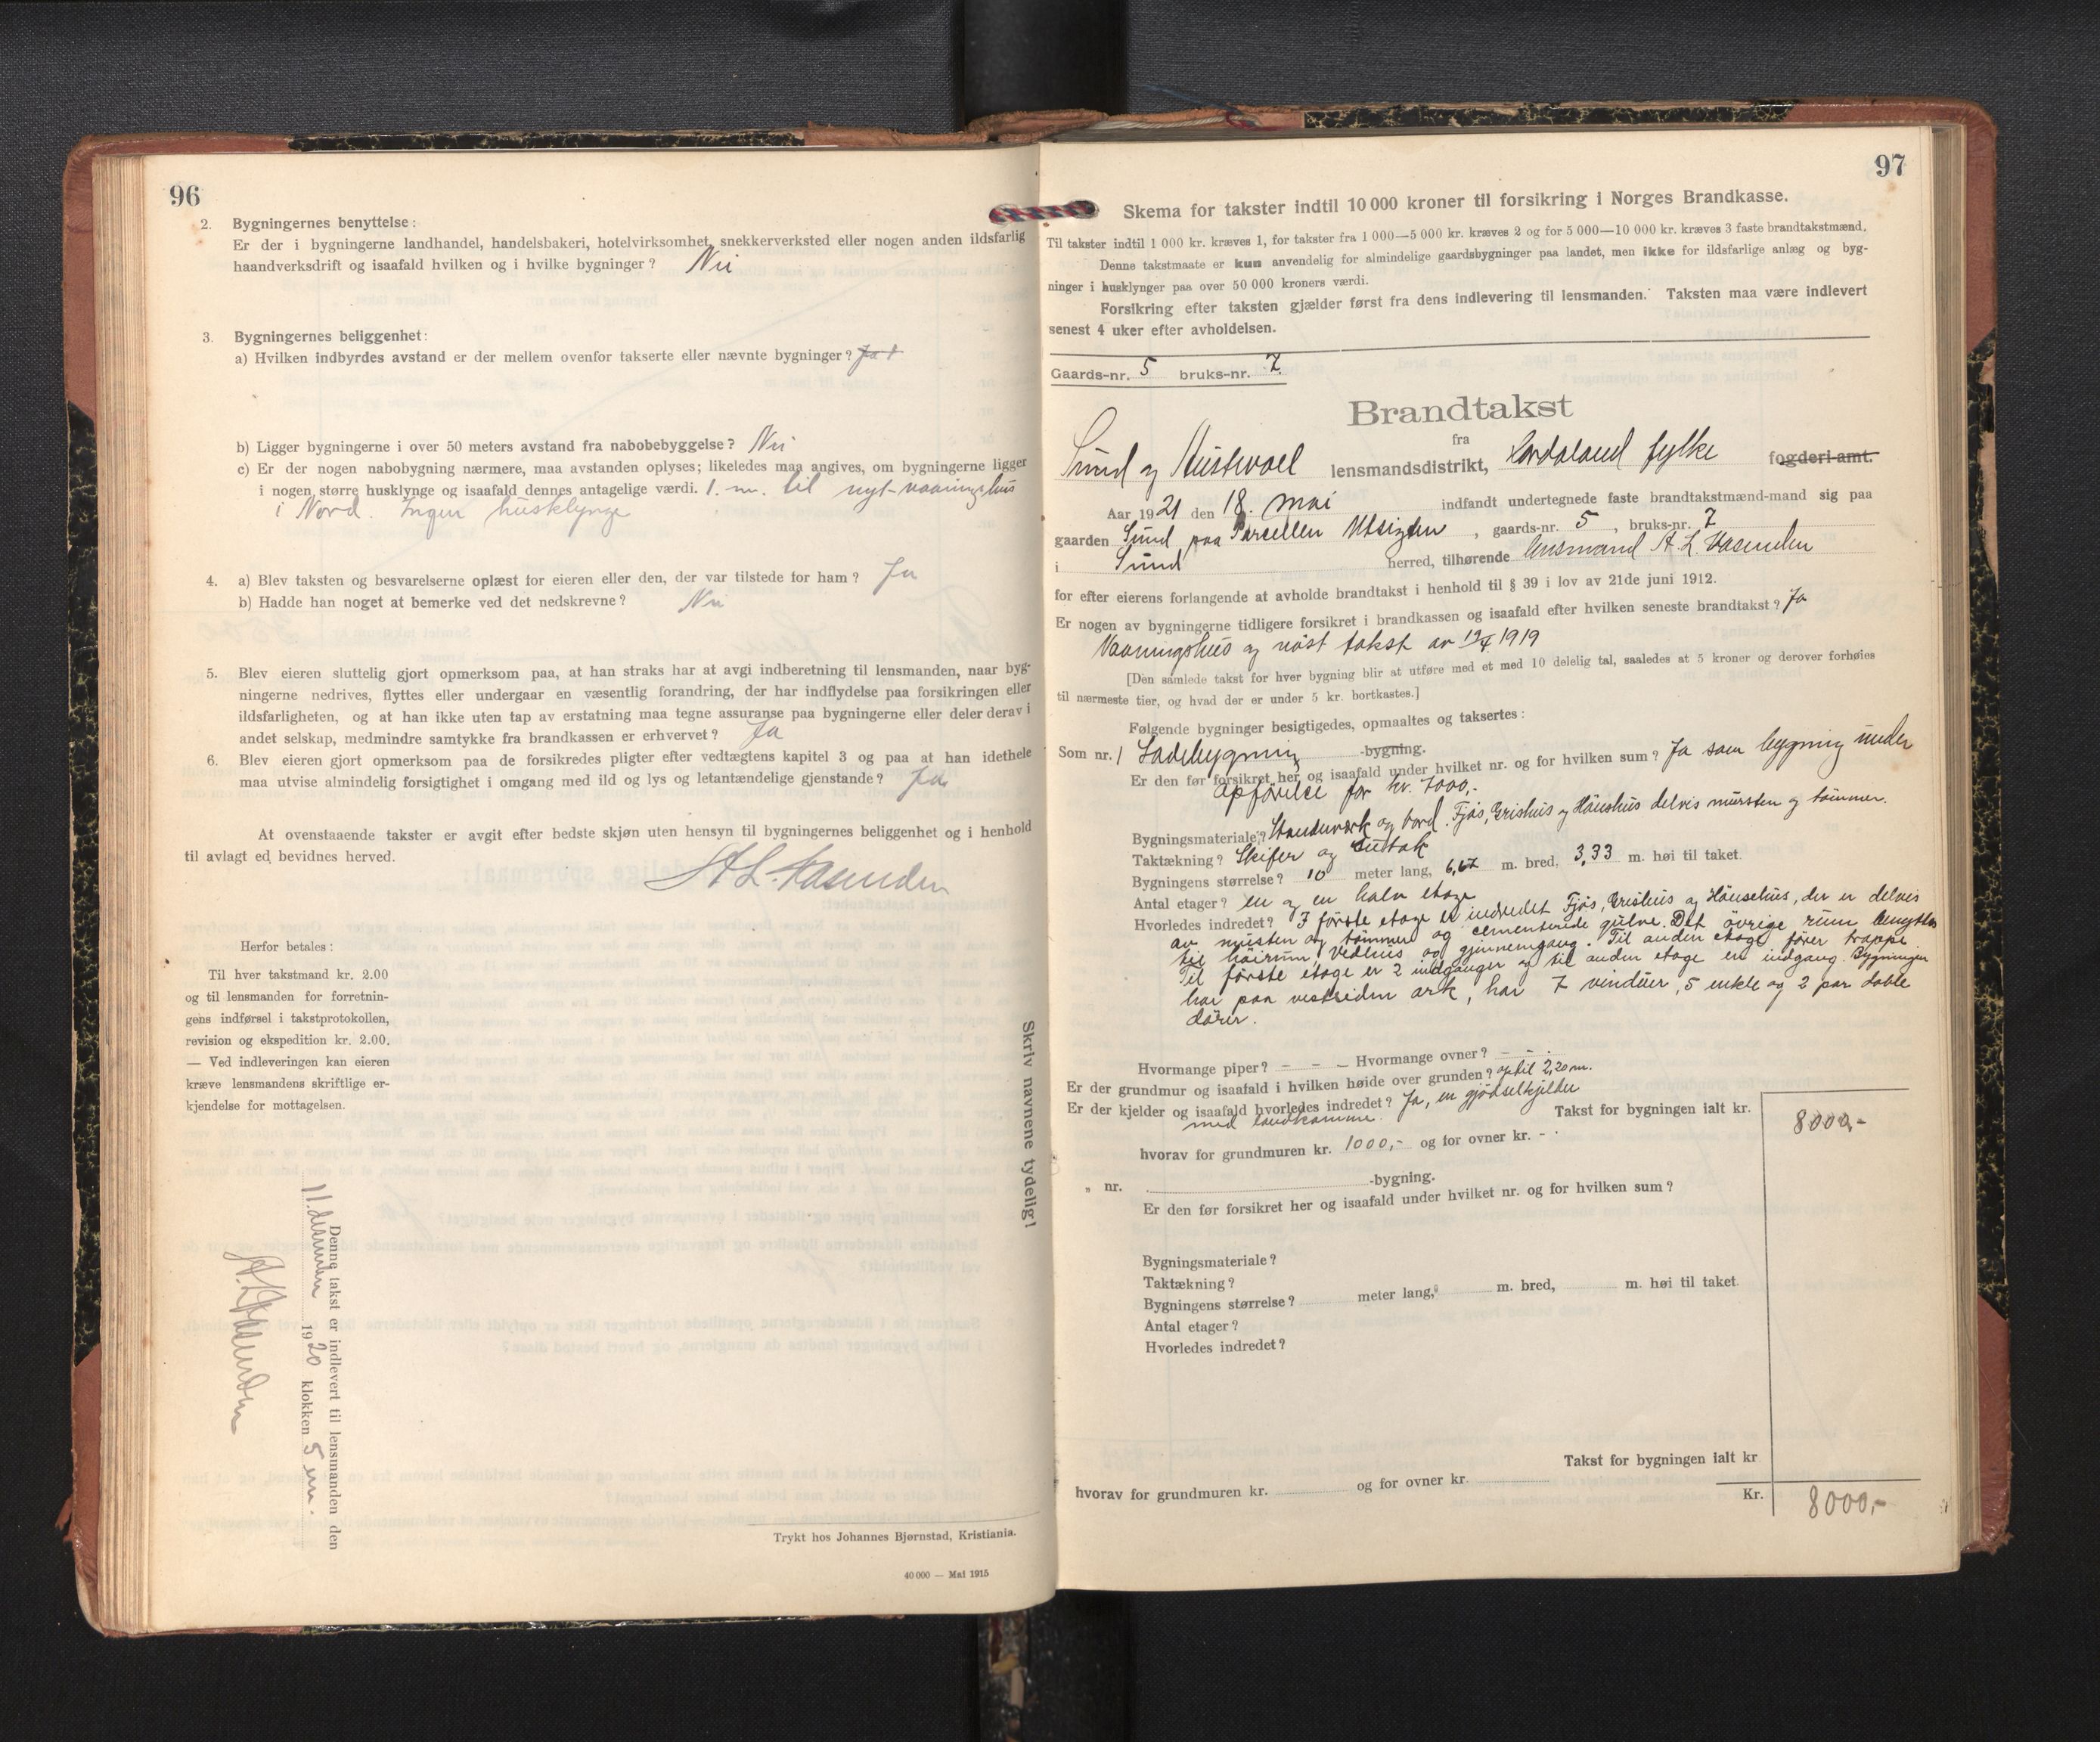 96
2. Bygningernes benyttelse:
Er der i bygningerne landhandel, handelsbakeri, hotelvirksomhet, snekkerverksted eller nogen anden ildsfarlig
haandverksdrift og isaafald hvilken og i hvilke bygninger? Nei
3. Bygningernes beliggenhet:
a) Hvilken indbyrdes avstand er der mellem ovenfor takserte eller nævnte bygninger?
b) Ligger bygningerne i over 50 meters avstand fra nabobebyggelse? Nei
c) Er der nogen nabobygning nærmere, maa avstanden oplyses; likeledes maa angives, om bygningerne ligger
i nogen større husklynge og isaafald dennes antagelige værdi. 1. m. til nyt vaaningshus
i Nord. Ingen husklynge
4. a) Blev taksten og besvarelserne oplæst for eieren eller den, der var tilstede for ham? Ja
b) Hadde han noget at bemerke ved det nedskrevne? Nei
5. Blev eieren sluttelig gjort opmerksom paa, at han straks har at avgi indberetning til lensmanden, naar byg-
ningerne nedrives, flyttes eller undergaar en væsentlig forandring, der har indflydelse paa forsikringen eller
ildsfarligheten, og at han ikke uten tap av erstatning maa tegne assuranse paa bygningerne eller deler derav i
andet selskap, medmindre samtykke fra brandkassen er erhvervet? Ja
6. Blev eieren gjort opmerksom paa de forsikredes pligter efter vedtægtens kapitel 3 og paa at han idethele
maa utvise almindelig forsigtighet i omgang med ild og lys og letantændelige gjenstande? Ja
At ovenstaaende takster er avgit efter bedste skjøn uten hensyn til bygningernes beliggenhet og i henhold
til avlagt ed bevidnes herved.
A L. Vasenden
Herfor betales:
Til hver takstmand kr. 2.00
og til lensmanden for forretnin-
gens indførsel i takstprotokollen,
revision og ekspedition kr. 2.00.
— Ved indleveringen kan eieren
kræve lensmandens skriftlige er-
kjendelse for mottagelsen.
Skriv navnene tydelig!
Denne takst er indlevert til lensmanden den
11. desember 1920 klokken 5 em.
A. L. Vasenden
Trykt hos Johannes Bjørnstad, Kristiania.
40 000 — Mai 1915
97
Skema for takster indtil 10 000 kroner til forsikring i Norges Brandkasse.
Til takster indtil 1 000 kr. kræves 1, for takster fra 1 000—5 000 kr. kræves 2 og for 5 000—10 000 kr. kræves 3 faste brandtakstmænd.
Denne takstmaate er kun anvendelig for almindelige gaardsbygninger paa landet, men ikke for ildsfarlige anlæg og byg-
ninger i husklynger paa over 50 000 kroners værdi.
Forsikring efter taksten gjælder først fra dens indlevering til lensmanden. Taksten maa være indlevert
senest 4 uker efter avholdelsen.
Gaards-nr. 5 bruks-nr. 7.
Brandtakst
fra
Sund og Austevoll lensmandsdistrikt, Hordaland fylke fogderi-amt.
Aar 1921 den 18. mai indfandt undertegnede faste brandtakstmænd-mand sig paa
gaarden Sund, paa Parcellen Utsigten, gaards-nr. 5, bruks-nr. 7
i Sund herred, tilhørende lensmand A. L. Vasenden
for efter eierens forlangende at avholde brandtakst i henhold til § 39 i lov av 21de juni 1912.
Er nogen av bygningerne tidligere forsikret i brandkassen og isaafald efter hvilken seneste brandtakst? Ja
Vaaningshus og nøst takst av 1919
[Den samlede takst for hver bygning blir at utføre med et med 10 delelig tal, saaledes at 5 kroner og derover forhøies
til nærmeste tier, og hvad der er under 5 kr. bortkastes.]
Følgende bygninger besigtigedes, opmaaltes og taksertes:
Som nr. 1 Ladebygning -bygning.
Er den før forsikret her og isaafald under hvilket nr. og for hvilken sum? Ja som bygning under
opførelse for kr. 7000,-
Bygningsmateriale? Standverk og bord. Fjøs, Grishus og Hønshus delvis mursten og tømmer.
Taktækning? Skifer og
Bygningens størrelse? 10 meter lang, 6,67 m. bred, 3,33 m. høi til taket.
Antal etager? en og en halv etage
Hvorledes indredet? I første etage er indredet Fjøs, Grishus og Hønsehus, der er delvis
av mursten og tømmer og cementerede gulve. Det øvrige rum benyttes
til høirum, Vedhus og gjennemgang. Til anden etage fører trappe.
Til første etage er 2 indganger og til anden etage en indgang. Bygningen
har paa vestsiden ark, har 7 vinduer, 5 enkle og 2 par doble
dører.
Hvormange piper? - - - Hvormange ovner? - - .
Er der grundmur og isaafald i hvilken høide over grunden? optil 2,20 m.
Er der kjelder og isaafald hvorledes indredet? Ja, en gjødselkjelder
med landkamme. Takst for bygningen ialt kr. 8000,-
hvorav for grundmuren kr. 1000,- og for ovner kr. - .
„ nr. -bygning.
Er den før forsikret her og isaafald under hvilket nr. og for hvilken sum?
Bygningsmateriale?
Taktækning?
Bygningens størrelse? meter lang, m. bred, m. høi til taket.
Antal etager?
Hvorledes indredet?
Takst for bygningen ialt kr
hvorav for grundmuren kr. og for ovner kr.
Kr. 8000,-